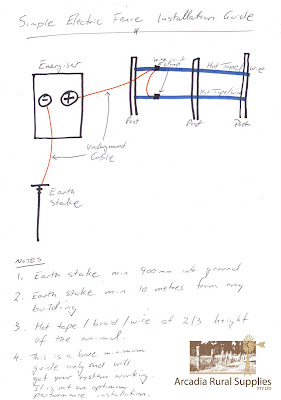 Simple Electric Fence Installation Guide
Energiser
Hot Tape/wire
Hot Tape/wire
Post
Post
Post
Underground
Cable
Earth
Stake
NOTES
1. Earth stake min 900mm into ground
2. Earth stake min 10 metres from any
building
3. Hot tape / braid / wire at 2/3 height
of the animal.
4. This is a bare minimum
guide only and will
get your system working.
It is not an optimum
performance installation.
Arcadia Rural Supplies
PTY LTD